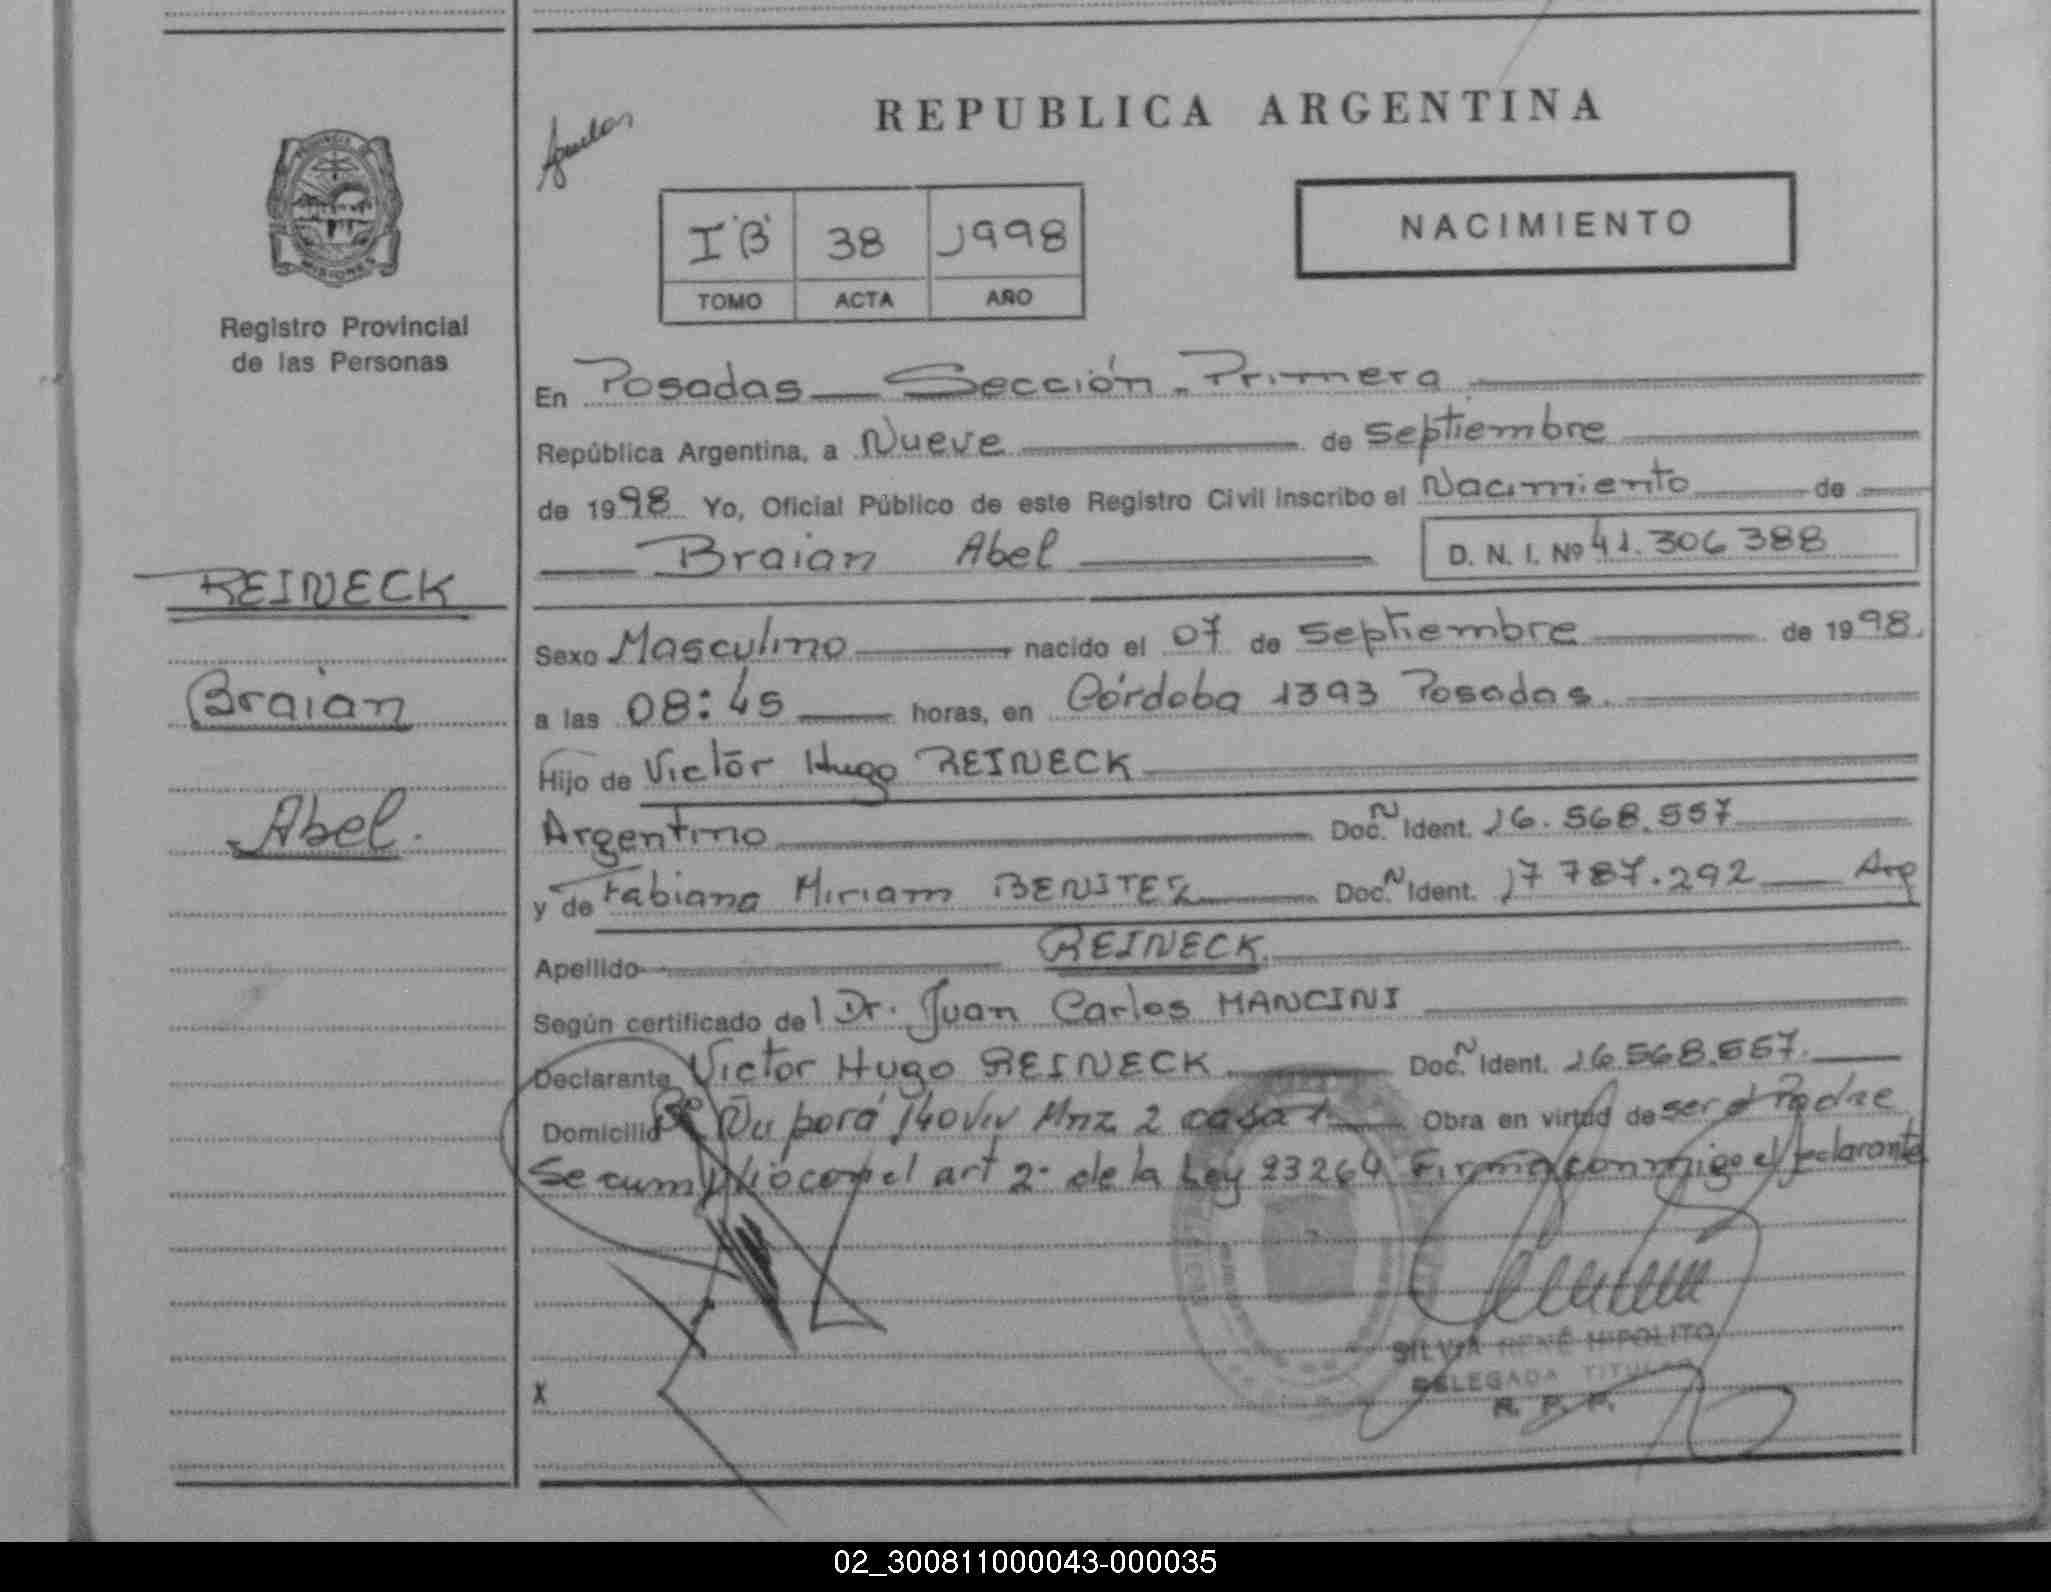 Registro Provincial
de las Personas
REINECK
Braian
Abel.
REPUBLICA ARGENTINA
I "B" 38 1998
TOMO ACTA AÑO
NACIMIENTO
En Posadas Sección Primera
República Argentina, a Nueve de septiembre
de 1998 Yo, Oficial Público de este Registro Civil inscribo el Nacimiento de
Braian Abel D. N. I. Nº 41.306 388
Sexo Masculino nacido el 07 de septiembre de 1998.
a las 08:45 horas, en Córdoba 1393 Posadas.
Hijo de Victor Hugo REINECK
Argentino Doc. N Ident. 16.568.557
y de Fabiana Miriam BENITEZ Doc. N Ident. 17 787.292 Arg
Apellido REINECK.
Según certificado del Dr. Juan Carlos MANCINI
Declarante Victor Hugo REINECK Doc. N Ident. 16.568.557.
Domicilio Bº Ñu porá 140 viv Mnz 2 casa 1 Obra en virtud de ser el Padre
Se cumplió con el art 2º de la Ley 23264 Firma conmigo el declarante
SILVIA RENÉ HIPOLITO
DELEGADA TITULAR
R. P. P.
X
02_300811000043-000035